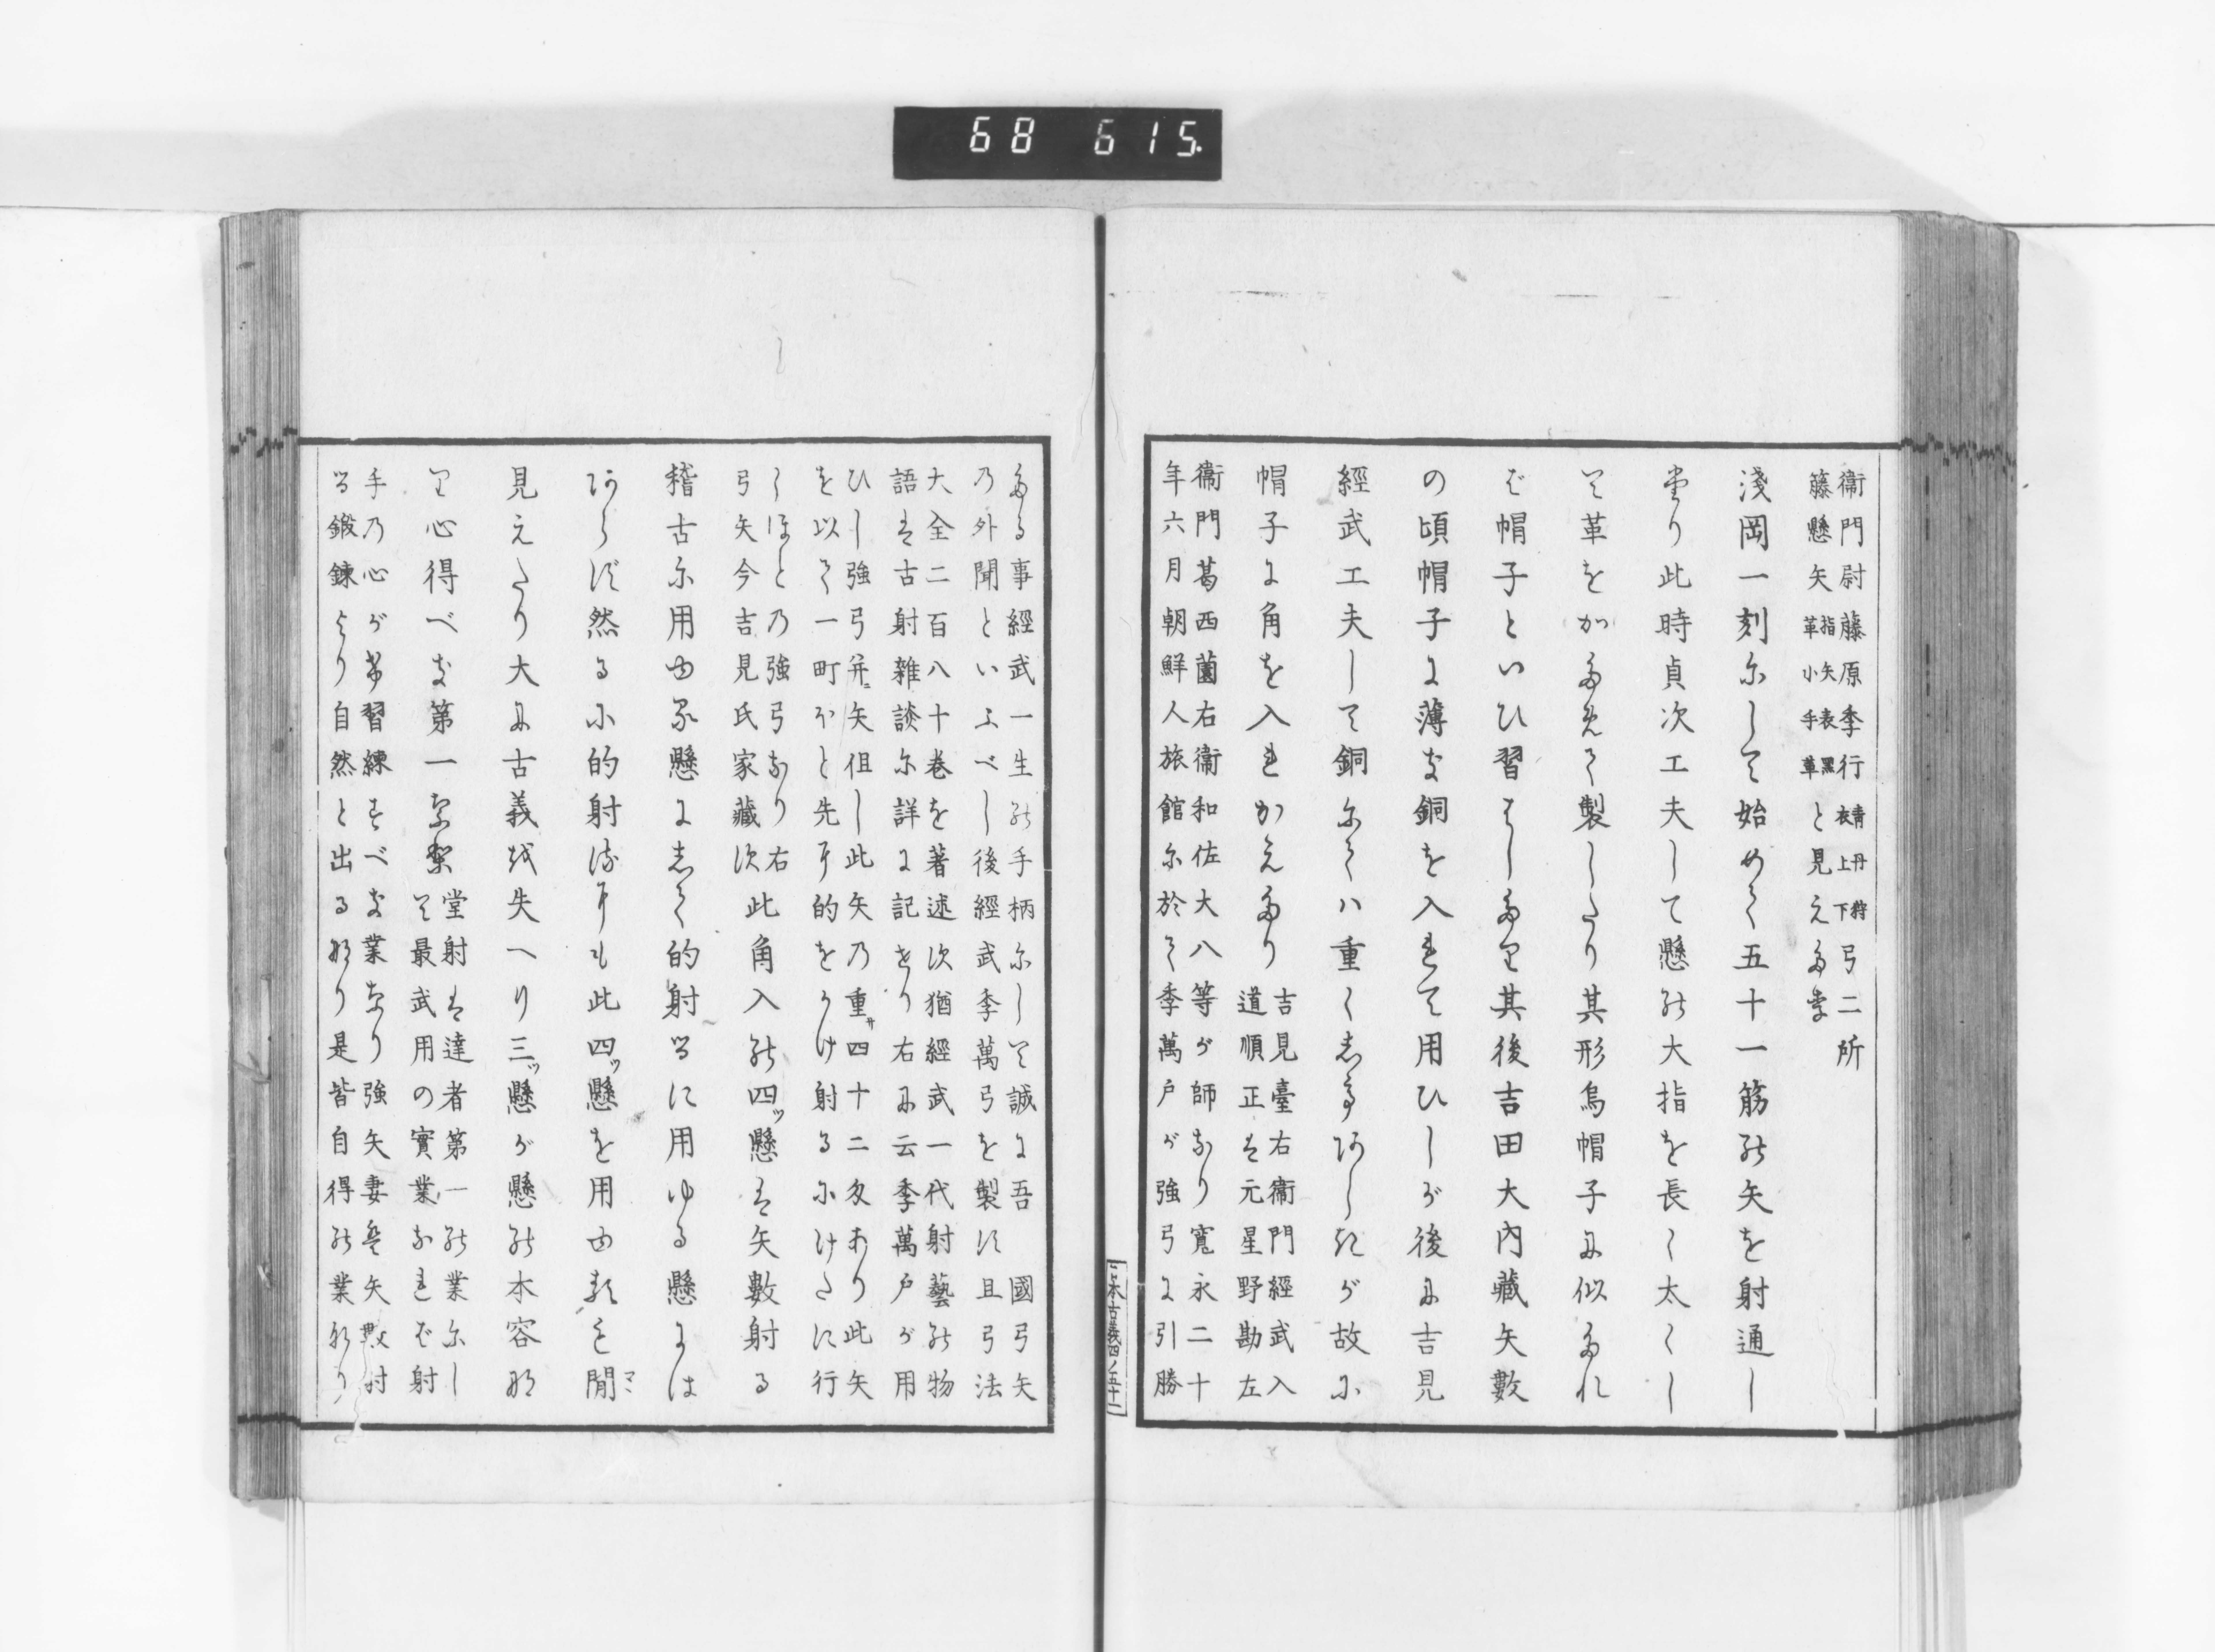 68 615.
衞門尉藤原季行 衣青 上丹 下狩 弓二所
藤懸矢 革指 小矢 手表 革黑 と見えたり
淺岡一刻にして始めて五十一筋の矢を射通し
たり此時貞次工夫して懸の大指を長く太くし
て革をかためて製したり其形烏帽子に似たれ
ば帽子といひ習はしたり其後吉田大內藏矢數
の頃帽子に薄き銅を入れて用ひしが後に吉見
經武工夫して銅にてハ重くしてあしきが故に
帽子に角を入れかえたり 吉見臺右衞門經武入
道順正は元星野勘左
衞門葛西薗右衞和佐大八等が師なり寬永二十
年六月朝鮮人旅館に於て季萬戶が強弓に引勝
二本古義四ノ五十二
たる事經武一生の手柄にして誠に吾 國弓矢
の外聞といふべし後經武季萬弓を製す且弓法
大全二百八十卷を著述す猶經武一代射藝の物
語は古射雜談に詳に記せり右に云季萬戶が用
ひし強弓并ニ矢但し此矢の重サ四十二匁あり此矢
を以て一町ほと先す的をかけ射るにけたに行
しほとの強弓なり右
弓矢今吉見氏家藏す 此角入の四ツ懸は矢數射る
稽古に用ゆる懸にして的射るに用ゆる懸には
あらず然るに小的射るすも此四ツ懸を用ゆるを閒ママ
見えたり大に古義を失へり三ツ懸が懸の本容な
り心得べき第一なり 堂射は達者第一の業にし
て最武用の實業なれば射
手の心が常習練すべき業なり強矢妻矢矢數射
る鍛鍊より自然と出るなり是皆自得の業なり